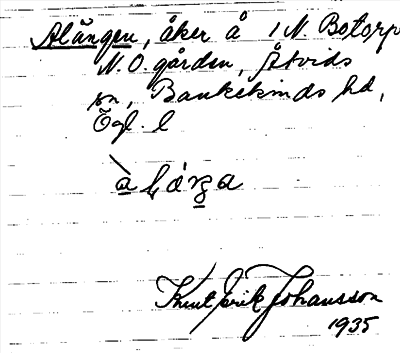 Alängen, åker å 1 N. Botorp
N. O. gården, Åtvids
sn, Bankekinds hd,
Ögl. l
Knut Erik Johansson
1935